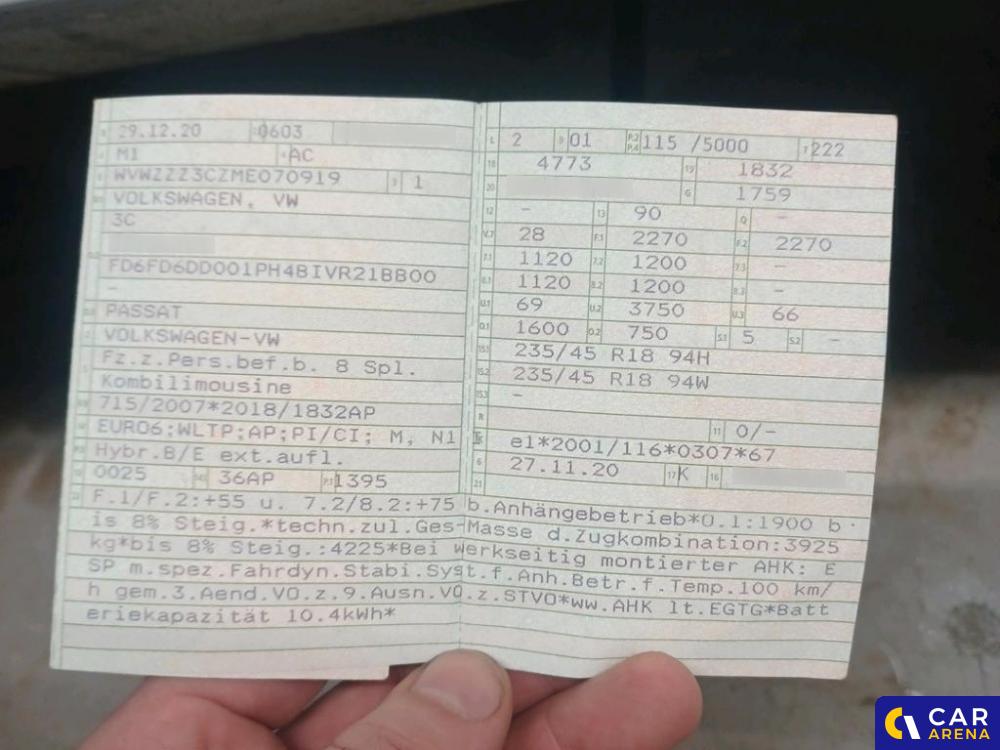 B 29.12.20 0603
M1 AC
WVWZZZ3CZME070919 3 1
VOLKSWAGEN, VW
3C
FD6FD6DD001PH4BIVR21BB00
-
PASSAT
VOLKSWAGEN-VW
Fz.z.Pers.bef.b. 8 Spl.
Kombilimousine
715/2007*2018/1832AP
EURO6;WLTP;AP;PI/CI; M, N1
Hybr.B/E ext.aufl.
0025 36AP P.1 1395
L 2 9 01 P.2 P.4 115 /5000 T 222
18 4773 19 1832
20 G 1759
12 - 13 90 Q -
V.7 28 F.1 2270 F.2 2270
7.1 1120 7.2 1200 7.3 -
8.1 1120 8.2 1200 8.3 -
U.1 69 U.2 3750 U.3 66
O.1 1600 O.2 750 S.1 5 S.2 -
15.1 235/45 R18 94H
15.2 235/45 R18 94W
15.3 -
R 11 0/-
K e1*2001/116*0307*67
6 27.11.20 17 K 16
21
22 F.1/F.2:+55 u. 7.2/8.2:+75 b.Anhängebetrieb*O.1:1900 b
is 8% Steig.*techn.zul.Ges-Masse d.Zugkombination:3925
kg*bis 8% Steig.:4225*Bei werkseitig montierter AHK: E
SP m.spez.Fahrdyn.Stabi.Syst.f.Anh.Betr.f.Temp.100 km/
h gem.3.Aend.VO.z.9.Ausn.VO.z.STVO*ww.AHK lt.EGTG*Batt
eriekapazität 10.4kWh*
CAR
ARENA